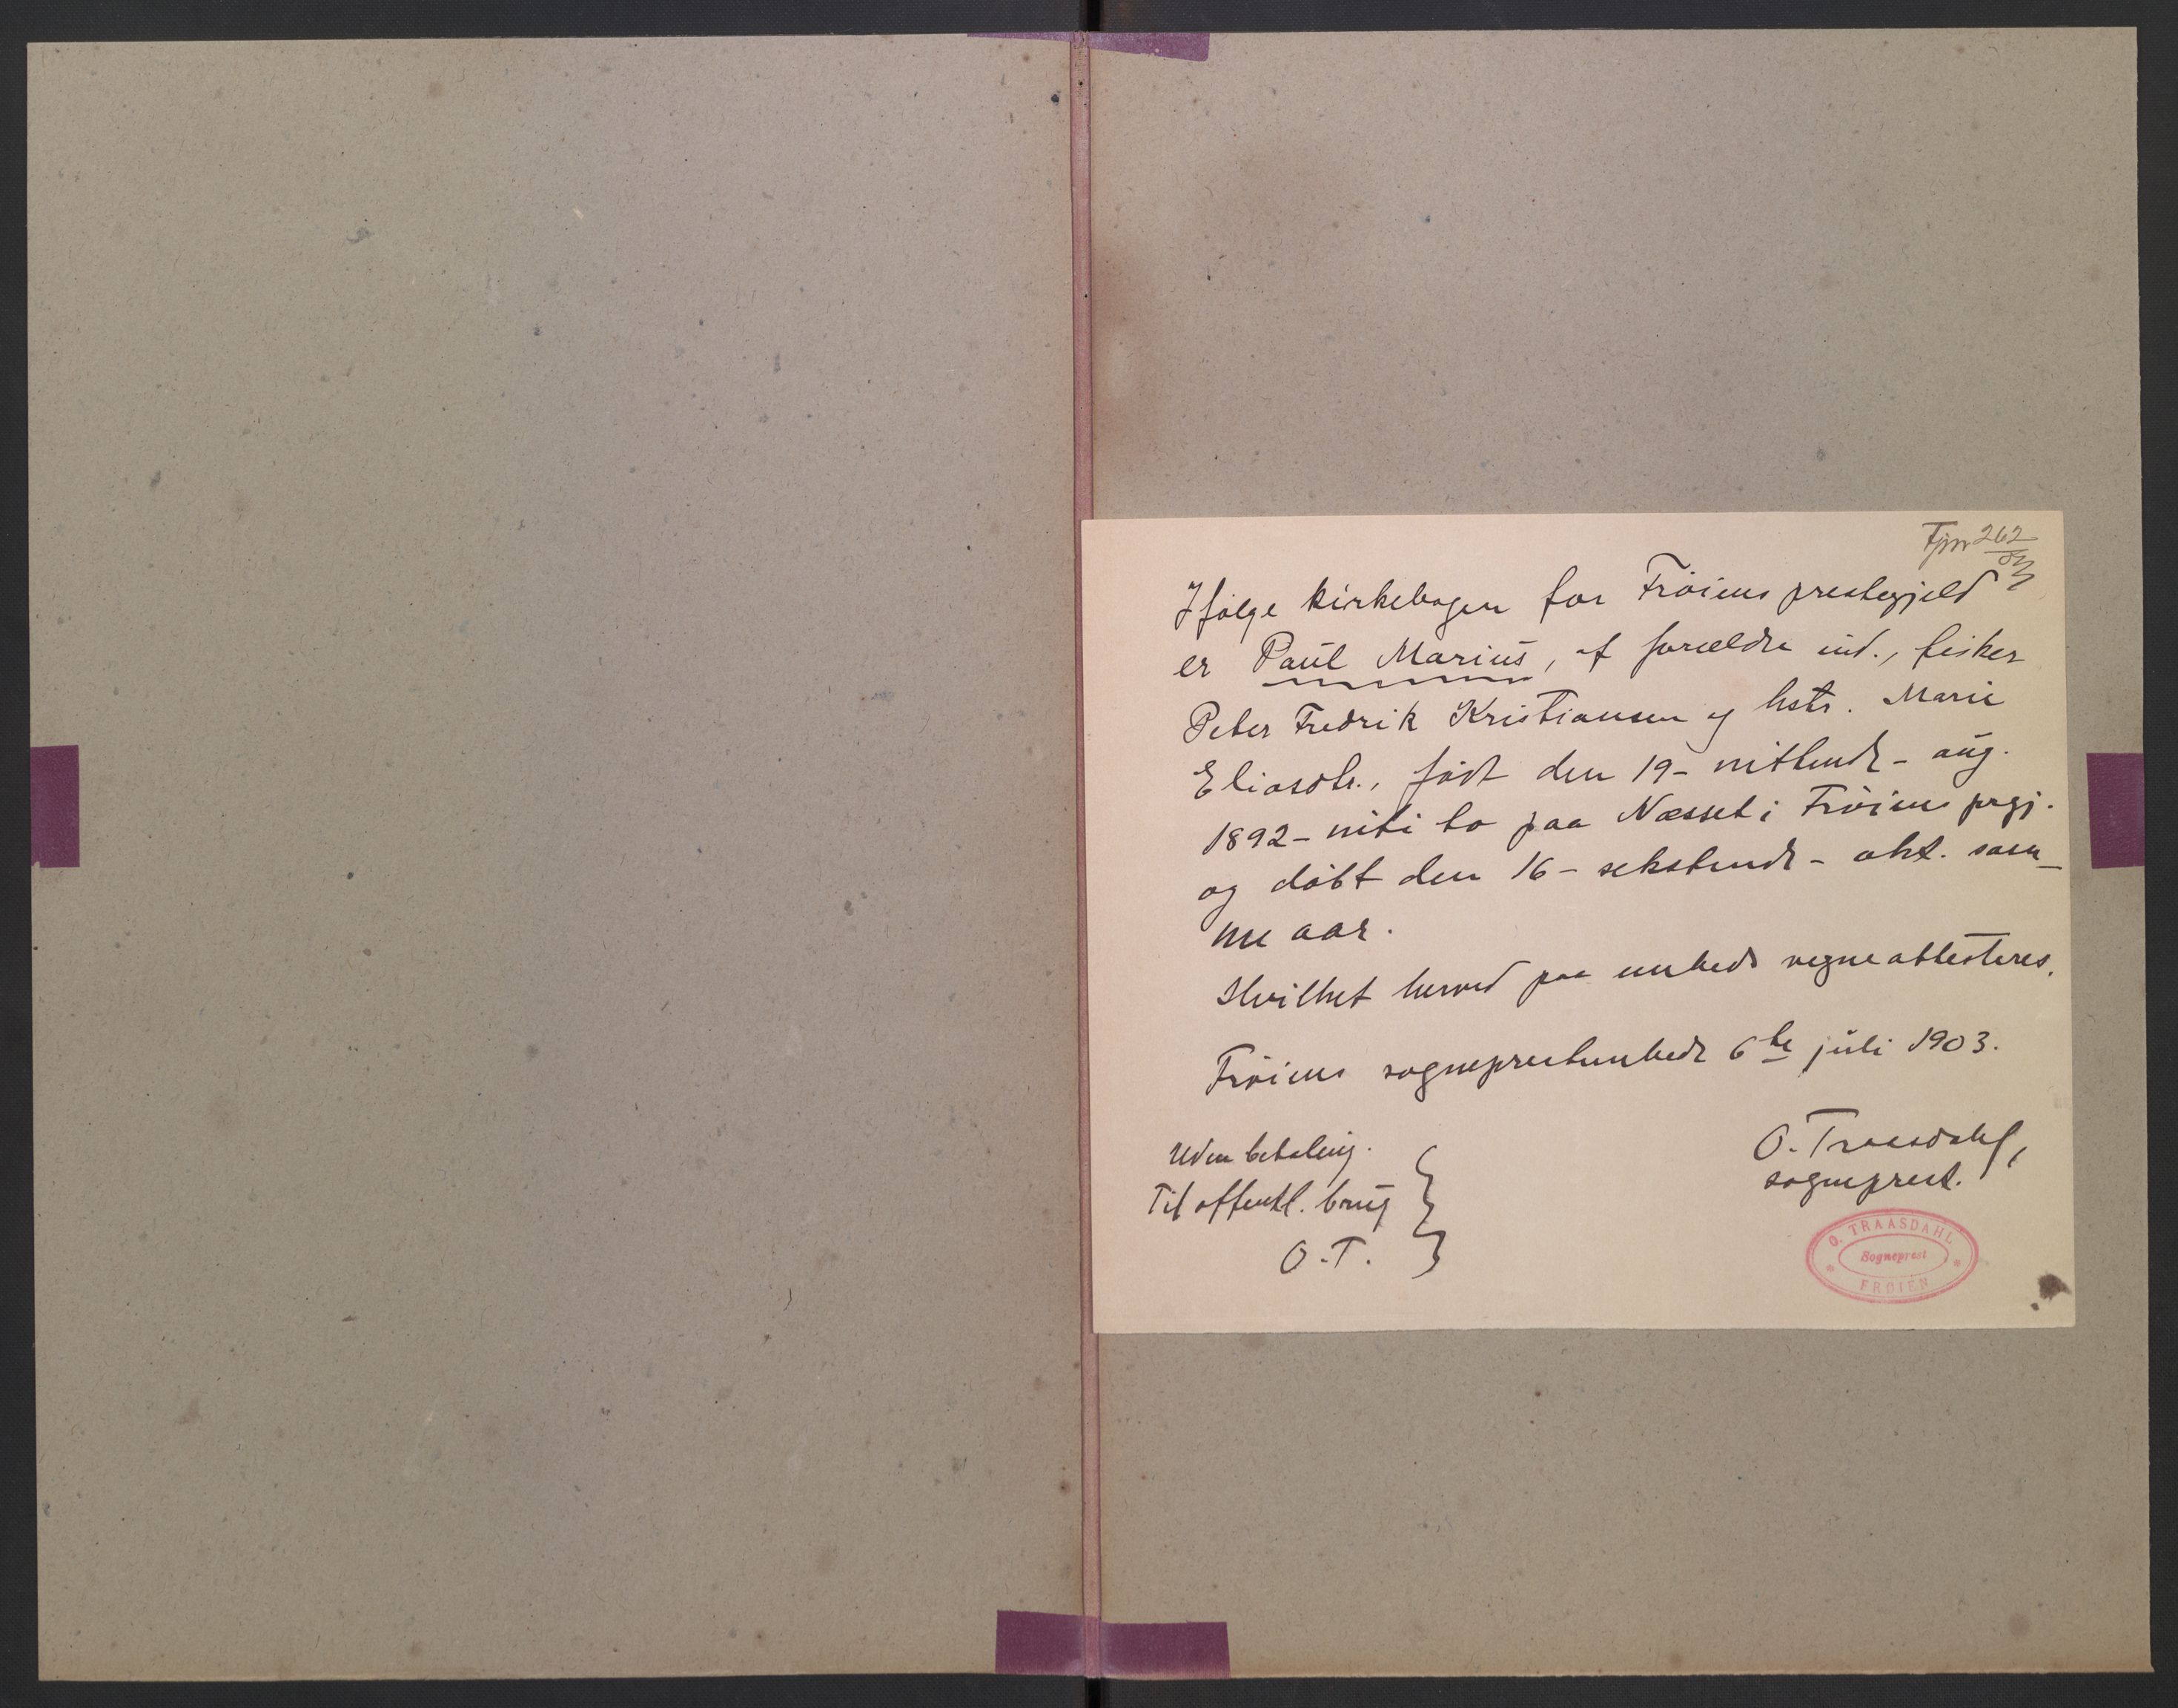 Tjnr 262/03
Ifølge kirkebogen for Frøiens prestegjeld
er Paul Marius, af forældre ind., fisker
Peter Fredrik Kristiansen og hstr. Marie
Eliasdtr., født den 19 - nittende - aug.
1892 - niti to paa Næsset i Frøiens prgj.
og døbt den 16 - sekstende - okt. sam-
me aar.
Hvilket herved paa embeds vegne attesteres.
Frøiens sogneprestembede 6te juli 1903.
O. Traasdahl,
sogneprest.
Uden betaling.
Til offentl. brug
O.T.
O. TRAASDAHL
Sogneprest
FRØIEN